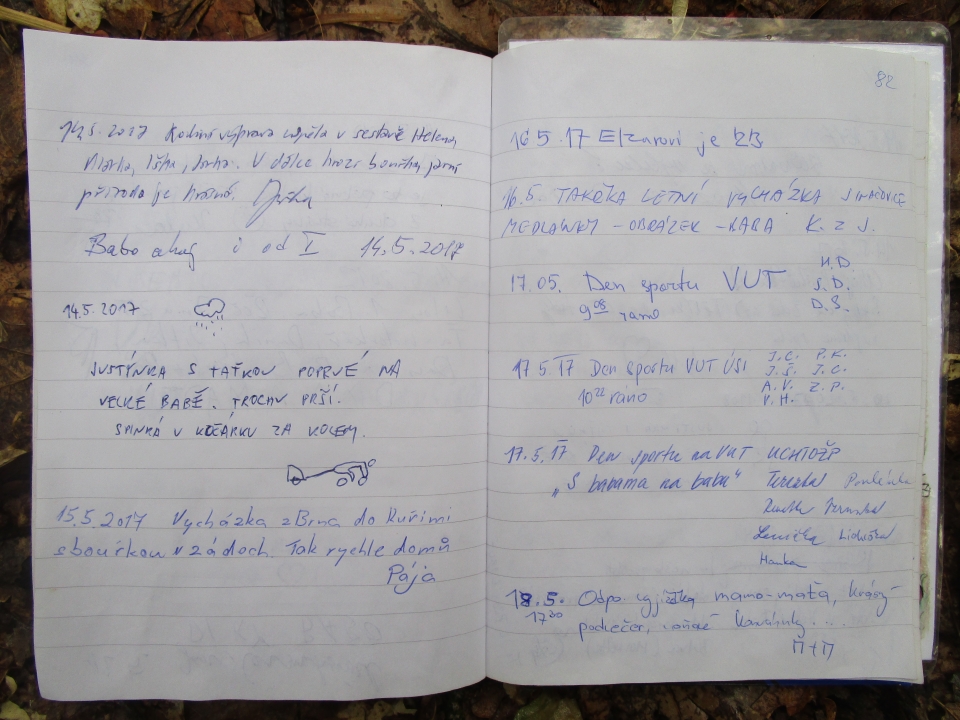 14.5.2017 Rodinná výprava uspěla v sestavě Helena,
V dálce hrozí bouřka, jarní
příroda je krásná.
Babo ahoj i od I 14.5.2017
14.5.2017
JUSTÝNKA S TAŤKOU POPRVÉ NA
VELKÉ BABĚ. TROCHU PRŠÍ.
SPINKÁ V KOČÁRKU ZA KOLEM.
15.5.2017 Vycházka z Brna do Kuřimi
s bouřkou v zádech. Tak rychle domů
Pája
82
16.5.17 je 23
16.5. TAKŘKA LETNÍ VYCHÁZKA
MEDLÁNKY - OBRÁZEK - BABA K. z J.
17.05. Den sportu VUT H.D.
S.D.
9 05 ráno D.Š.
17.5.17 Den sportu VUT ÚSI J.C. P.K.
J.Š. J.C.
10 22 ráno A.V. Z.P.
V.H.
17.5.17 Den sportu na VUT
"S babama na babu"
Lenička
Hanka
18.5. Odpo. vyjížďka mamo-maťa, krásný
17 30
podvečer,